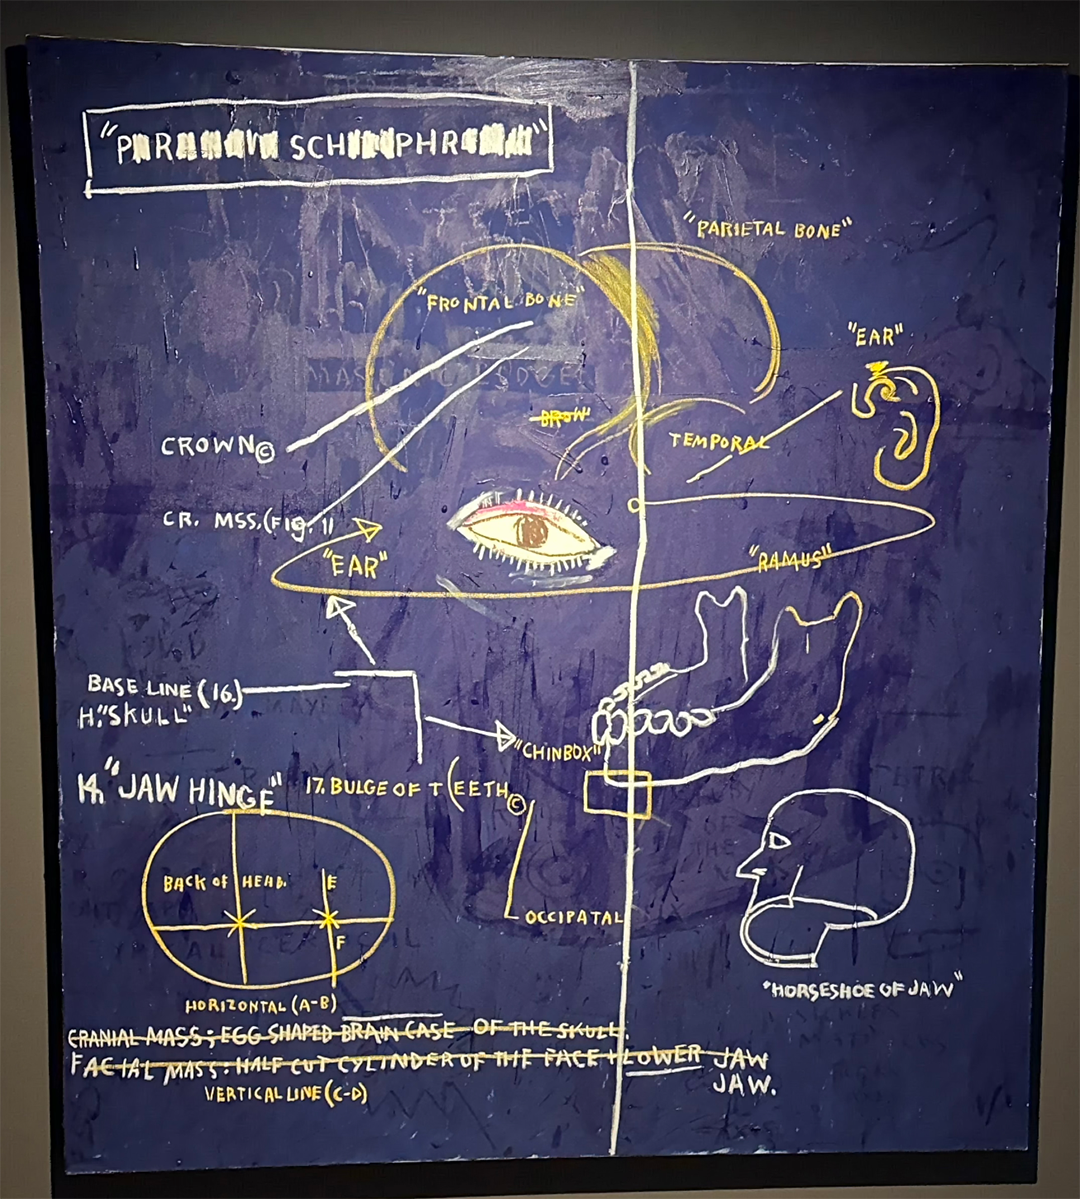 "PARANOIA SCHIZOPHRENIA"
"PARIETAL BONE"
"FRONTAL BONE"
"EAR"
BROW"
CROWN©
TEMPORAL
CR. MSS.(FIG. 1)
"EAR"
"RAMUS"
BASE LINE (16.)
H."SKULL"
"CHINBOX"
"JAW HINGE"
17. BULGE OF T(EETH©
BACK OF HEAD.
E
F
OCCIPATAL
"HORSESHOE OF JAW"
HORIZONTAL (A-B)
CRANIAL MASS; EGG SHAPED BRAIN CASE OF THE SKULL.
FACIAL MASS: HALF CUT CYLINDER OF THE FACE + LOWER JAW
JAW.
VERTICAL LINE (C-D)